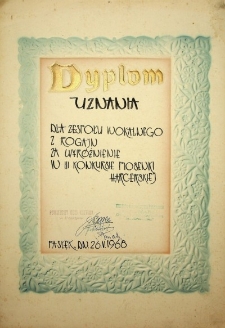 Dyplom
UZNANIA
DLA ZESPOŁU WOKALNEGO
Z ROGAJN
ZA WYRÓŻNIENIE
W III KONKURSIE PIOSENKI
HARCERSKIEJ
PASŁĘK, DN. 26.V.1968